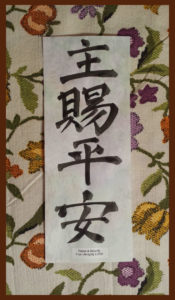 主賜平安